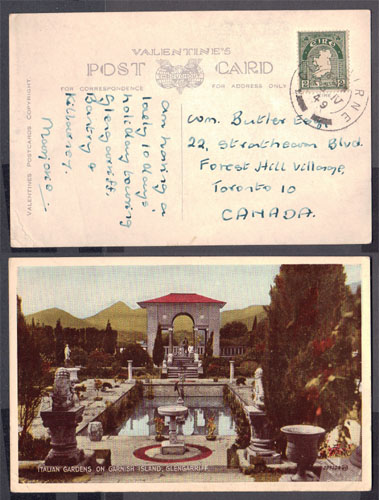 VALENTINE'S
POST CARD
FOR CORRESPONDENCE
FOR ADDRESS ONLY
VALENTINES POSTCARDS COPYRIGHT.
ÉIRE
2 2
49
am having a
lovely 10 days'
holiday touring
Glengarriff,
Bantry &
Killarney.
Marjorie
Wm. Butler Esq.
22, Strathearn Blvd.
Forest Hill Village,
Toronto 10
CANADA.
ITALIAN GARDENS ON GARNISH ISLAND, GLENGARRIFF